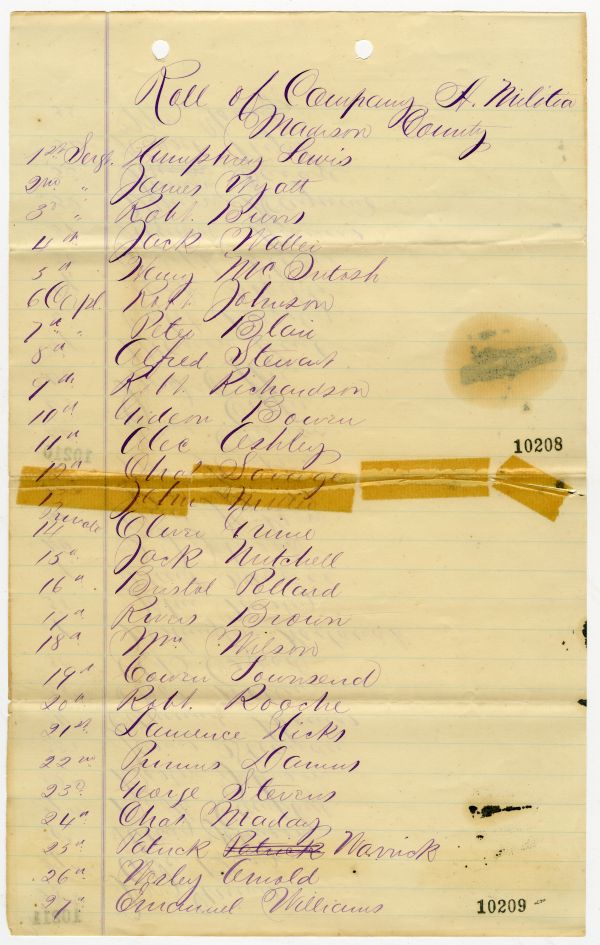 Roll of Company A. Militia
Madison County
1st Sergt. Humphrey Lewis
2nd " James Wyatt
3d " Robt. Burns
4th Jack Waller
5th Henry McIntosh
6 Corpl. Robt Johnson
7th " Peter Blair
8th Alfred Stewart
9th Robt. Richardson
10th Gideon Bowen
11th Alec Ashley
10208
12th Chas Savage
13 John
Private
14 Oliver
15th Jack Mitchell
16th Bristol Pollard
17th Rivers Brown
18th Wm Wilson
19th Cowen Townsend
20th Robt. Rooche
21st Laurence Hicks
22nd Primus
23d George Stevens
24th Chas Maday
25th Patrick Patrick Warrick
26th Wesley Arnold
27th Emanuel Williams
10209